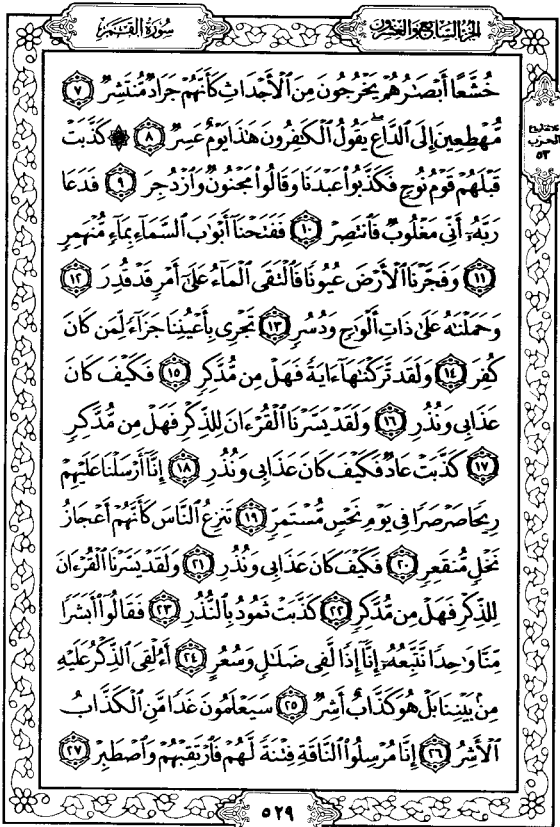 سُورَةُ القَمَرِ
الجُزْءُ السَّابِعُ وَالعِشْرُونَ
خُشَّعًا أَبْصَٰرُهُمْ يَخْرُجُونَ مِنَ ٱلْأَجْدَاثِ كَأَنَّهُمْ جَرَادٌ مُّنتَشِرٌ ٧
مُّهْطِعِينَ إِلَى ٱلدَّاعِ ۖ يَقُولُ ٱلْكَٰفِرُونَ هَٰذَا يَوْمٌ عَسِرٌ ٨ ۞ كَذَّبَتْ
قَبْلَهُمْ قَوْمُ نُوحٍ فَكَذَّبُوا۟ عَبْدَنَا وَقَالُوا۟ مَجْنُونٌ وَٱزْدُجِرَ ٩ فَدَعَا
رَبَّهُۥٓ أَنِّى مَغْلُوبٌ فَٱنتَصِرْ ١٠ فَفَتَحْنَآ أَبْوَٰبَ ٱلسَّمَآءِ بِمَآءٍ مُّنْهَمِرٍ
١١ وَفَجَّرْنَا ٱلْأَرْضَ عُيُونًا فَٱلْتَقَى ٱلْمَآءُ عَلَىٰٓ أَمْرٍ قَدْ قُدِرَ ١٢
وَحَمَلْنَٰهُ عَلَىٰ ذَاتِ أَلْوَٰحٍ وَدُسُرٍ ١٣ تَجْرِى بِأَعْيُنِنَا جَزَآءً لِّمَن كَانَ
كُفِرَ ١٤ وَلَقَد تَّرَكْنَٰهَآ ءَايَةً فَهَلْ مِن مُّدَّكِرٍ ١٥ فَكَيْفَ كَانَ
عَذَابِى وَنُذُرِ ١٦ وَلَقَدْ يَسَّرْنَا ٱلْقُرْءَانَ لِلذِّكْرِ فَهَلْ مِن مُّدَّكِرٍ
١٧ كَذَّبَتْ عَادٌ فَكَيْفَ كَانَ عَذَابِى وَنُذُرِ ١٨ إِنَّآ أَرْسَلْنَا عَلَيْهِمْ
رِيحًا صَرْصَرًا فِى يَوْمِ نَحْسٍ مُّسْتَمِرٍّ ١٩ تَنزِعُ ٱلنَّاسَ كَأَنَّهُمْ أَعْجَازُ
نَخْلٍ مُّنقَعِرٍ ٢٠ فَكَيْفَ كَانَ عَذَابِى وَنُذُرِ ٢١ وَلَقَدْ يَسَّرْنَا ٱلْقُرْءَانَ
لِلذِّكْرِ فَهَلْ مِن مُّدَّكِرٍ ٢٢ كَذَّبَتْ ثَمُودُ بِٱلنُّذُرِ ٢٣ فَقَالُوٓا۟ أَبَشَرًا
مِّنَّا وَٰحِدًا نَّتَّبِعُهُۥٓ إِنَّآ إِذًا لَّفِى ضَلَٰلٍ وَسُعُرٍ ٢٤ أَءُلْقِىَ ٱلذِّكْرُ عَلَيْهِ
مِنۢ بَيْنِنَا بَلْ هُوَ كَذَّابٌ أَشِرٌ ٢٥ سَيَعْلَمُونَ غَدًا مَّنِ ٱلْكَذَّابُ
ٱلْأَشِرُ ٢٦ إِنَّا مُرْسِلُوا۟ ٱلنَّاقَةِ فِتْنَةً لَّهُمْ فَٱرْتَقِبْهُمْ وَٱصْطَبِرْ ٢٧
الحزب
٥٣
٥٢٩